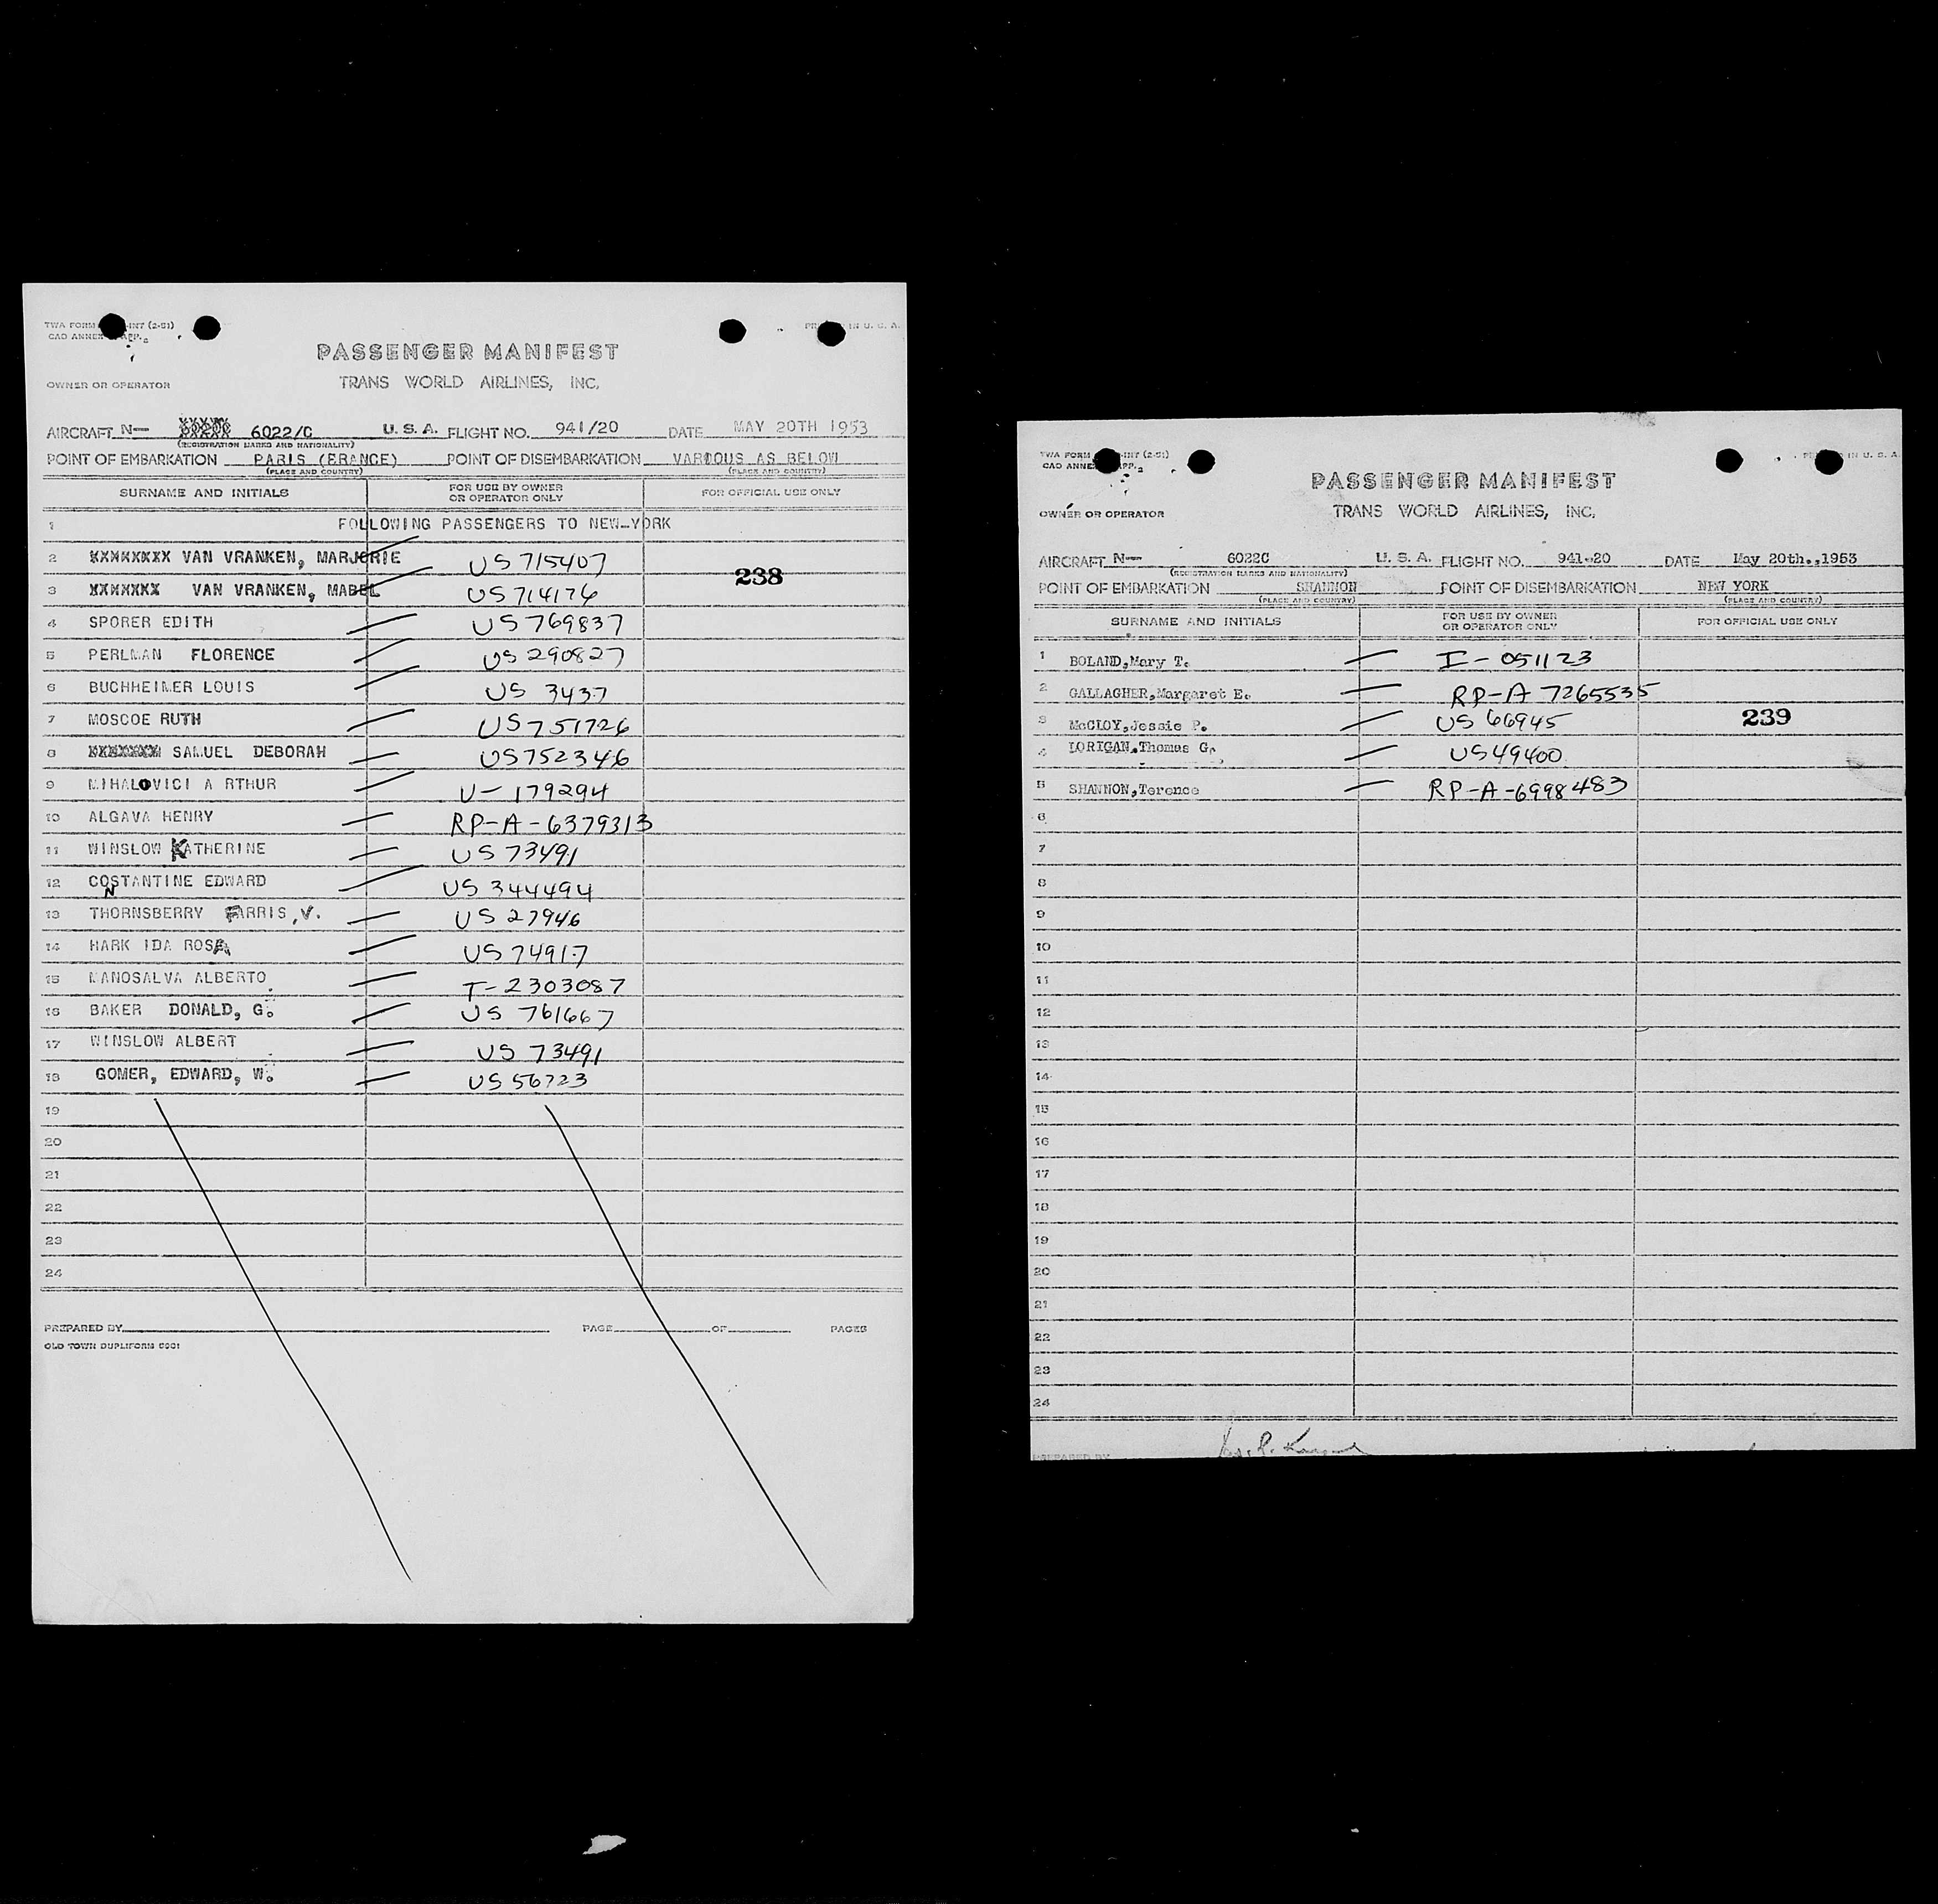 TWA FORM -INT (2-51)
CAO ANNEX APP. 2
IN U. S. A.
PASSENGER MANIFEST
OWNER OR OPERATOR TRANS WORLD AIRLINES, INC.
AIRCRAFT N— XXXXX 6022/C U. S. A. FLIGHT NO. 941/20 DATE MAY 20TH 1953
(REGISTRATION MARKS AND NATIONALITY)
POINT OF EMBARKATION PARIS (FRANCE) POINT OF DISEMBARKATION VARIOUS AS BELOW
(PLACE AND COUNTRY) (PLACE AND COUNTRY)
SURNAME AND INITIALS FOR USE BY OWNER OR OPERATOR ONLY FOR OFFICIAL USE ONLY
1 FOLLOWING PASSENGERS TO NEW-YORK
2 XXXXXXXX VAN VRANKEN, MARJORIE US 715407
238
3 XXXXXXX VAN VRANKEN, MABEL US 714176
4 SPORER EDITH US 769837
5 PERLMAN FLORENCE US 290827
6 BUCHHEIMER LOUIS US 3437
7 MOSCOE RUTH US 751726
8 XXXXXXX SAMUEL DEBORAH US 752346
9 MIHALOVICI A RTHUR V- 179294
10 ALGAVA HENRY RP-A-6379313
11 WINSLOW KATHERINE US 73491
12 CONSTANTINE EDWARD US 344494
13 THORNSBERRY FARRIS, V. US 27946
14 HARK IDA ROSA US 74917
15 MANOSALVA ALBERTO T-2303087
16 BAKER DONALD, G. US 761667
17 WINSLOW ALBERT US 73491
18 GOMER, EDWARD, W. US 56723
19
20
21
22
23
24
PREPARED BY PAGE OF PAGES
OLD TOWN DUPLIFORM
TWA FORM -INT (2-51)
CAO ANNEX APP. 2
IN U. S. A.
PASSENGER MANIFEST
OWNER OR OPERATOR TRANS WORLD AIRLINES, INC.
AIRCRAFT N— 6022C U. S. A. FLIGHT NO. 941-20 DATE May 20th.,1953
(REGISTRATION MARKS AND NATIONALITY)
POINT OF EMBARKATION SHANNON POINT OF DISEMBARKATION NEW YORK
(PLACE AND COUNTRY) (PLACE AND COUNTRY)
SURNAME AND INITIALS FOR USE BY OWNER OR OPERATOR ONLY FOR OFFICIAL USE ONLY
1 BOLAND,Mary T. I- 051123
2 GALLAGHER,Margaret E. RP-A 7265535
3 McCLOY,Jessie P. US 66945 239
4 LORIGAN,Thomas G. US 49400
5 SHANNON,Terence RP-A-6998483
6
7
8
9
10
11
12
13
14
15
16
17
18
19
20
21
22
23
24
PREPARED BY